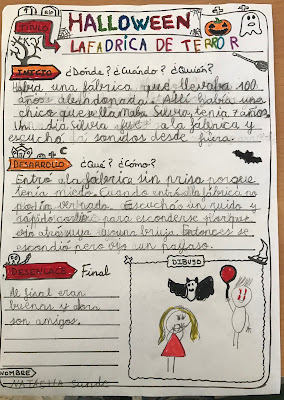 TÍTULO
HALLOWEEN
LA FADRICA DE TERROR
INICIO ¿Dónde? ¿Cuándo? ¿Quién?
Había una fábrica que llevaba 100
años abandonada. Allí había una
chica que se llamaba Silvia, tenía 7 años.
Un día Silvia fue a la fábrica y
escuchó sonidos desde fuera.
DESARROLLO ¿Qué? ¿Cómo?
Entró a la fabrica sin prisa porque
tenía miedo. Cuando entró a la fábrica no
podía ver nada. Escuchó un ruido y
rápido para esconderse porque
una bruja. Entonces se
escondió pero un payaso.
DESENLACE Final
Al final eran
buenas y ahora
son amigos.
DIBUJO
NOMBRE
NATALIA